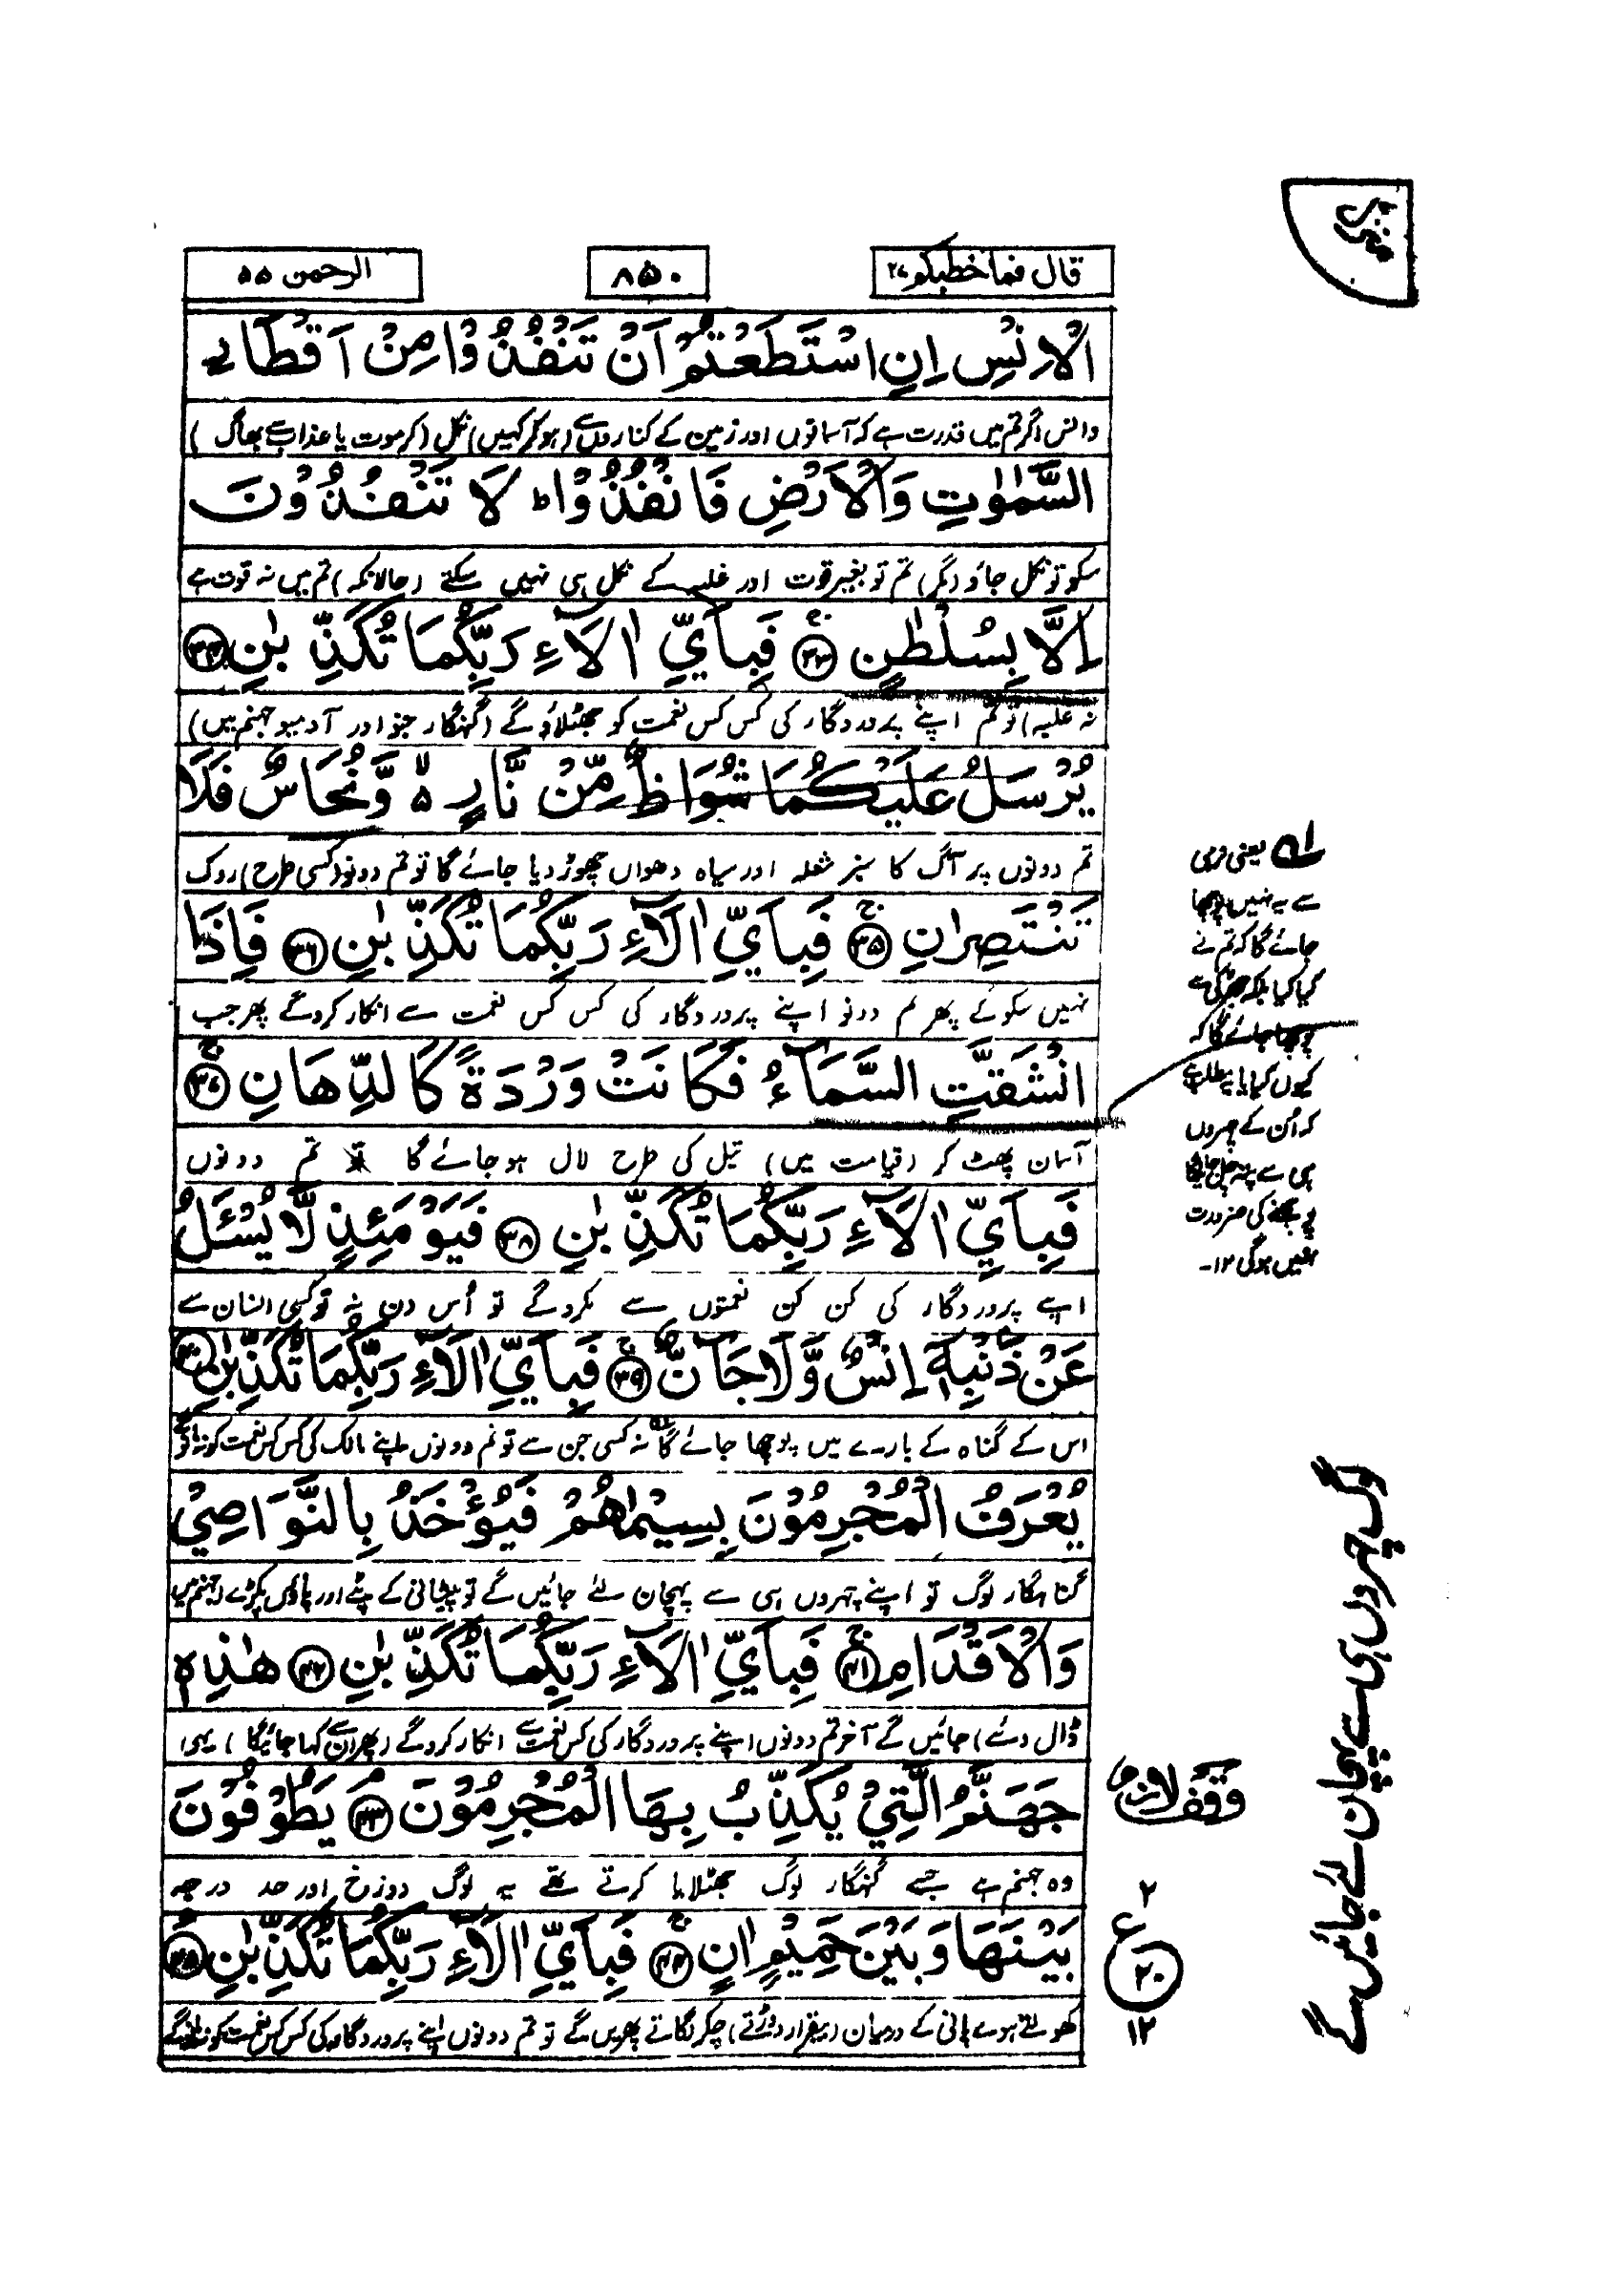 منزل
قال فما خطبکم ۲۷
۸۵۰
الرحمن ۵۵
الْاِنْسِ اِنِ اسْتَطَعْتُمْ اَنْ تَنْفُذُوْا مِنْ اَقْطَارِ
والنس اگر تم میں قدرت ہے کہ آسمانوں اور زمین کے کناروں سے (ہو کر کہیں) نکل (کر موت یا عذاب سے بھاگ)
السَّمٰوٰتِ وَالْاَرْضِ فَانْفُذُوْا ط لَا تَنْفُذُوْنَ
سکو تو نکل جاؤ (مگر) تم تو بغیر قوت اور غلبہ کے نکل ہی نہیں سکتے (حالانکہ) تم میں نہ قوت ہے
اِلَّا بِسُلْطٰنٍ ج ۳۳ فَبِاَيِّ اٰلَآءِ رَبِّكُمَا تُكَذِّبٰنِ ۳۴
نہ غلبہ) تو تم اپنے پروردگار کی کس کس نعمت کو جھٹلاؤ گے (گنہگار جنو اور آدمیو جہنم میں)
يُرْسَلُ عَلَيْكُمَا شُوَاظٌ مِّنْ نَّارٍ ۵ لا وَّنُحَاسٌ فَلَا
تم دونوں پر آگ کا سبز شعلہ اور سیاہ دھواں چھوڑ دیا جائے گا تو تم دونو (کسی طرح) روک
تَنْتَصِرٰنِ ج ۳۵ فَبِاَيِّ اٰلَآءِ رَبِّكُمَا تُكَذِّبٰنِ ۳۶ فَاِذَا
نہیں سکو گے پھر تم دونو اپنے پروردگار کی کس کس نعمت سے انکار کرو گے پھر جب
انْشَقَّتِ السَّمَآءُ فَكَانَتْ وَرْدَةً كَالدِّهَانِ ج ۳۷
آسمان پھٹ کر (قیامت میں) تیل کی طرح لال ہو جائے گا تو تم دونوں
فَبِاَيِّ اٰلَآءِ رَبِّكُمَا تُكَذِّبٰنِ ۳۸ فَيَوْمَئِذٍ لَّا يُسْئَلُ
اپنے پروردگار کی کن کن نعمتوں سے مکرو گے تو اُس دن نہ تو کسی انسان سے
عَنْ ذَنْۢبِهٖٓ اِنْسٌ وَّلَا جَآنٌّ ج ۳۹ فَبِاَيِّ اٰلَآءِ رَبِّكُمَا تُكَذِّبٰنِ ۴۰
اس کے گناہ کے بارے میں پوچھا جائے گا نہ کسی جن سے تو تم دونوں اپنے مالک کی کس کس نعمت کو نہ مانو گے
يُعْرَفُ الْمُجْرِمُوْنَ بِسِيْمٰهُمْ فَيُؤْخَذُ بِالنَّوَاصِيْ
گناہگار لوگ تو اپنے چہروں ہی سے پہچان لئے جائیں گے تو پیشانی کے پٹے اور پاؤں پکڑے (جہنم میں
وَالْاَقْدَامِ ج ۴۱ فَبِاَيِّ اٰلَآءِ رَبِّكُمَا تُكَذِّبٰنِ ۴۲ هٰذِهٖ
ڈال دئے) جائیں گے آخر تم دونوں اپنے پروردگار کی کس نعمت سے انکار کرو گے (پھر ان سے کہا جائیگا) یہی
جَهَنَّمُ الَّتِيْ يُكَذِّبُ بِهَا الْمُجْرِمُوْنَ م ۴۳ يَطُوْفُوْنَ
وہ جہنم ہے جسے گنہگار لوگ جھٹلایا کرتے تھے یہ لوگ دوزخ اور حد درجہ
بَيْنَهَا وَبَيْنَ حَمِيْمٍ اٰنٍ ج ۴۴ فَبِاَيِّ اٰلَآءِ رَبِّكُمَا تُكَذِّبٰنِ ۴۵
کھولتے ہوئے پانی کے درمیان (بیقرار دوڑتے) چکر لگاتے پھریں گے تو تم دونوں اپنے پروردگار کی کس کس نعمت کو نہ مانو گے
ف۱ یعنی نرمی
سے یہ نہیں پوچھا
جائے گا کہ تم نے
کیا کیا بلکہ جھڑکی سے
پوچھا جائے گا کہ
کیوں کیا یا یہ مطلب ہے
کہ اُن کے چہروں
ہی سے پتہ چل جائیگا
پوچھنے کی ضرورت
نہیں ہوگی ۱۲-
وقف لازم
۲
ع
۲۰
۱۲
لوگ چہروں ہی سے پہچان لئے جائیں گے